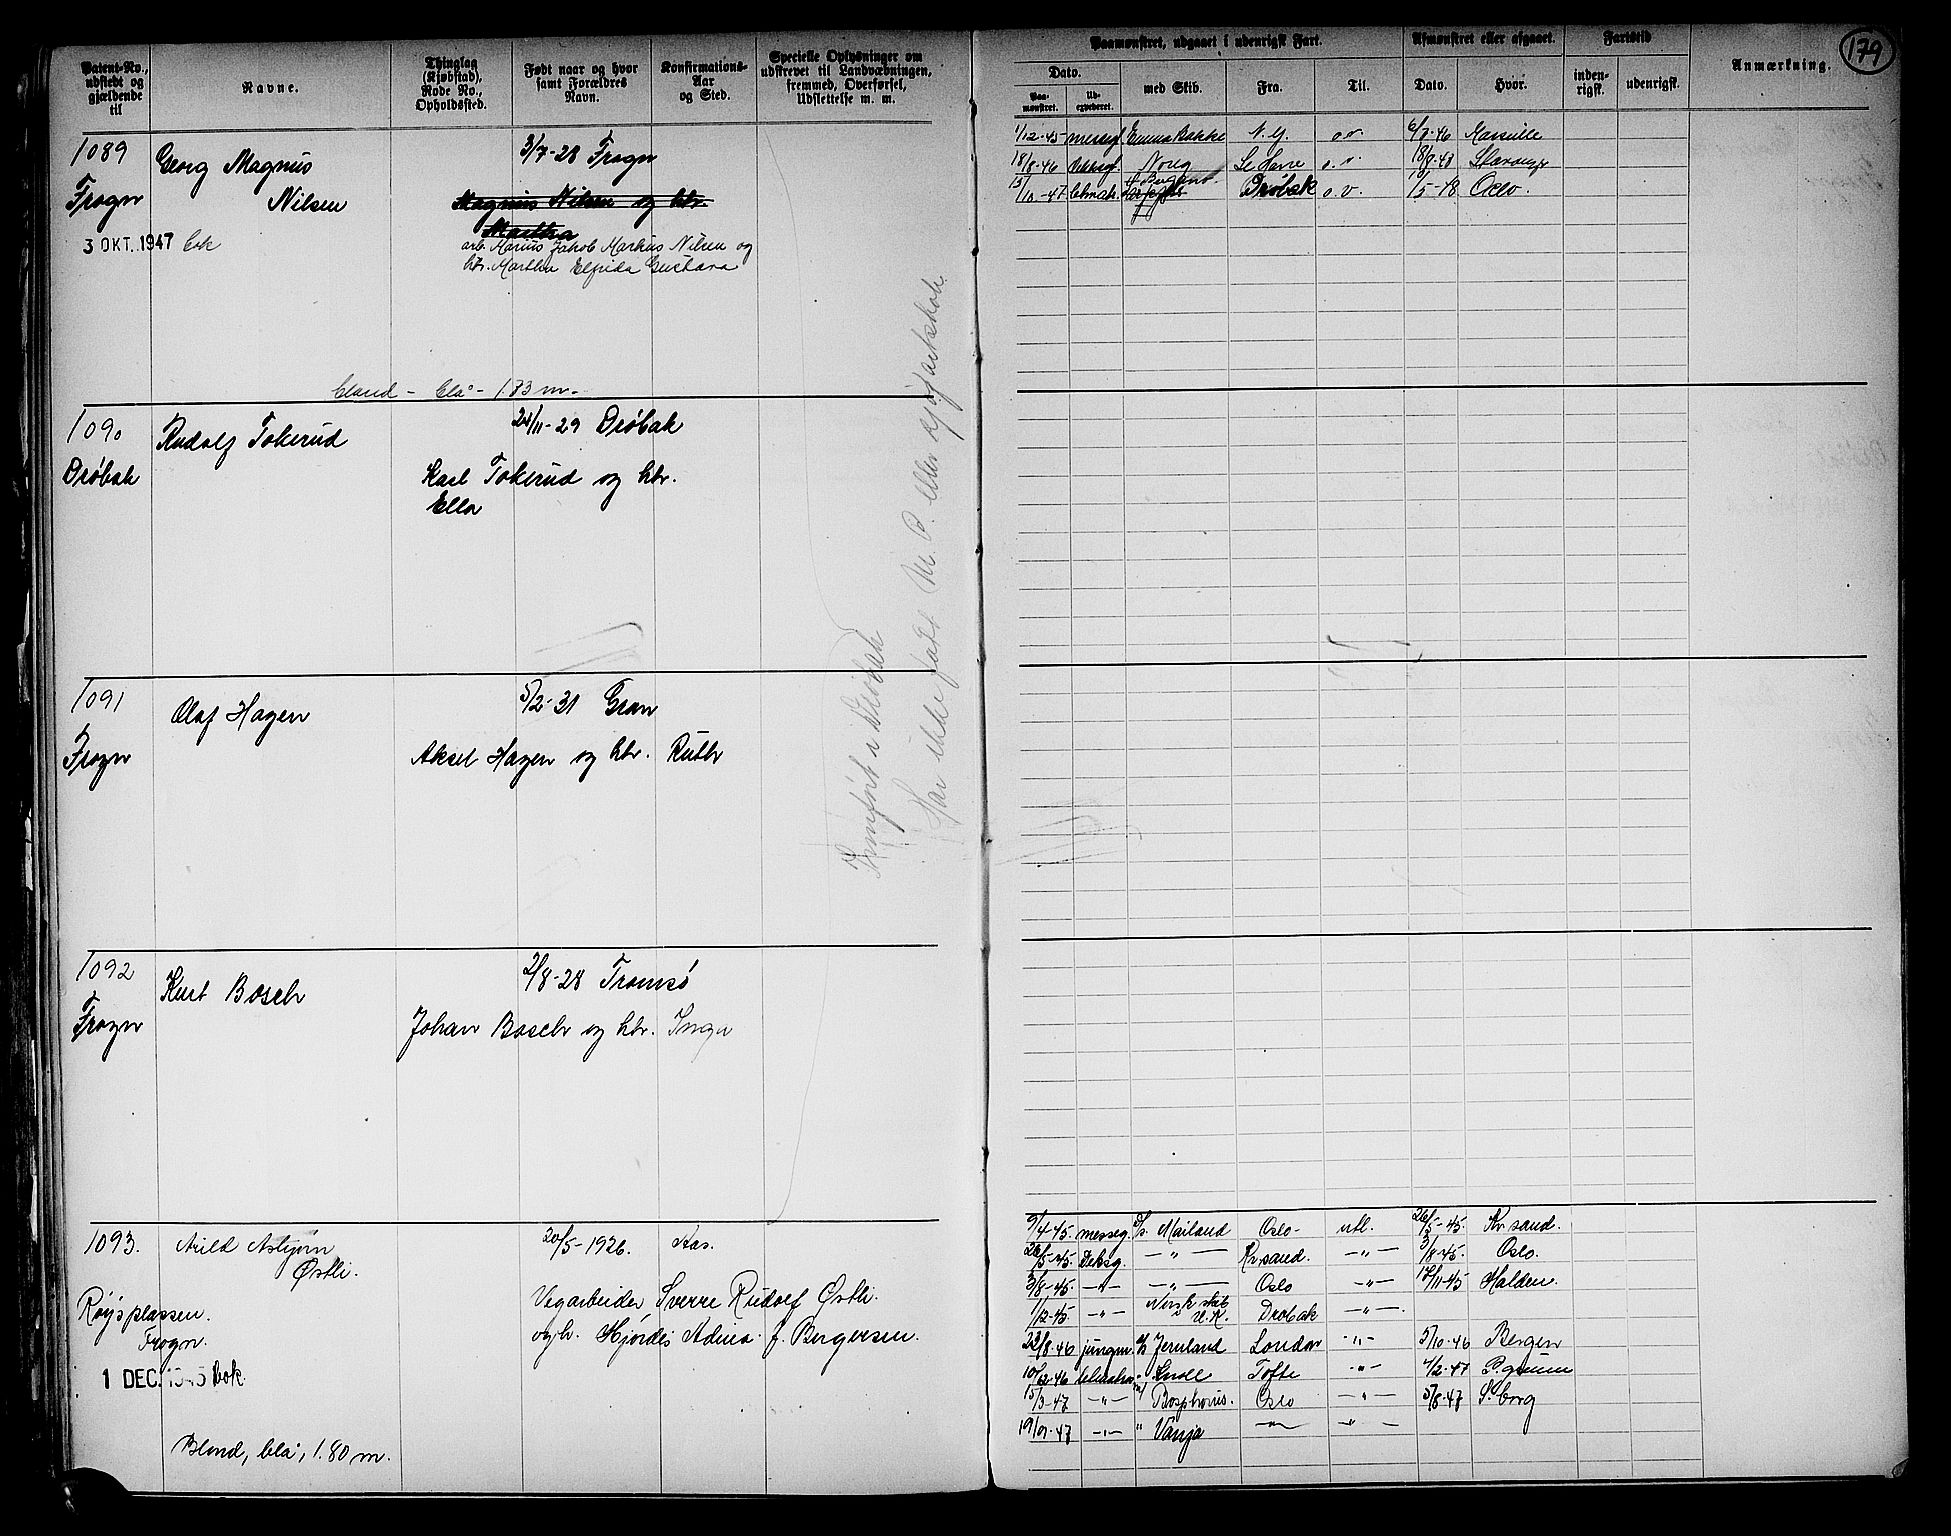 179
Patent-No., udstedt og gjældende til
Navne.
Thinglag (Kjøbstad), Rode No., Opholdssted.
Født naar og hvor samt Forældres Navn.
Konfirmations-Aar og Sted.
Specielle Oplysninger om udskrevet til Landværbningen, fremmed, Overførsel, Udslettelse m. m.
Paamønstret, udgaaet i udenrigsk Fart.
Afmønstret eller afgaaet.
Fartstid
Anmærkning.
Dato.
Paa-mønstret.
Ud-expederet.
med Skib.
Fra.
Til.
Dato.
Hvor.
inden-rigsk.
udenrigsk.
1089 Georg Magnus 3/7-28 Frogn
Frogn Nilsen Magnus Nilsen og htr.
Martha
3 OKT. 1947 bok arb. Marius Jakob Markus Nilsen og
htr. Martha Elfrida Gustava
bland - blå - 1.73 m.
1/12-45 messeg. Emma Bakke N.Y. o.v. 6/7-46 Marseille
18/8-46 Noreg Le Havre o.v. 18/9-47 Stavanger
13/10-47 Drøbak o.v. 1/5-48 Oslo.
1090 Rudolf Tokerud 24/11-29 Drøbak
Drøbak Karl Tokerud og htr.
Ella
1091 Olaf Hagen 5/2-31 Gran
Frogn Aksel Hagen og htr. Ruth
Innført i Drøbak
Har ikke fått M.P. eller sjøfartsbok
1092 Kurt Bosch 2/8-28 Tromsø
Frogn Johan Bosch og htr. Inga
1093. Arild Asbjørn 20/5-1926. Aas.
Østli.
Røysplassen. Vegarbeider Sverre Rudolf Østli.
Frogn. og h. Hjørdis Adina f. Bergersen.
1 DEC. 1945 bok
Blond, blå, 1.80 m.
9/4-45. messeg. s/s Mailand Oslo- utl. 26/5-45. Kr.sand.
26/5-45. Deksg. —"— Kr.sand. —"— 3/8-45. Oslo.
3/8-45. —"— —"— Oslo —"— 17/11-45 Halden.
1/12-45. —"— Norsk Drøbak —"—
23/8-46 jungm. Jernland London —"— 5/10-46 Bergen
10/12-46 Snoll Tofte —"— 4/2-47 P.grunn
15/3-47 —"— m/ Bosphorus. Oslo —"— 5/8-47 S.borg
19/9-47 —"— " Vanja —"— —"—